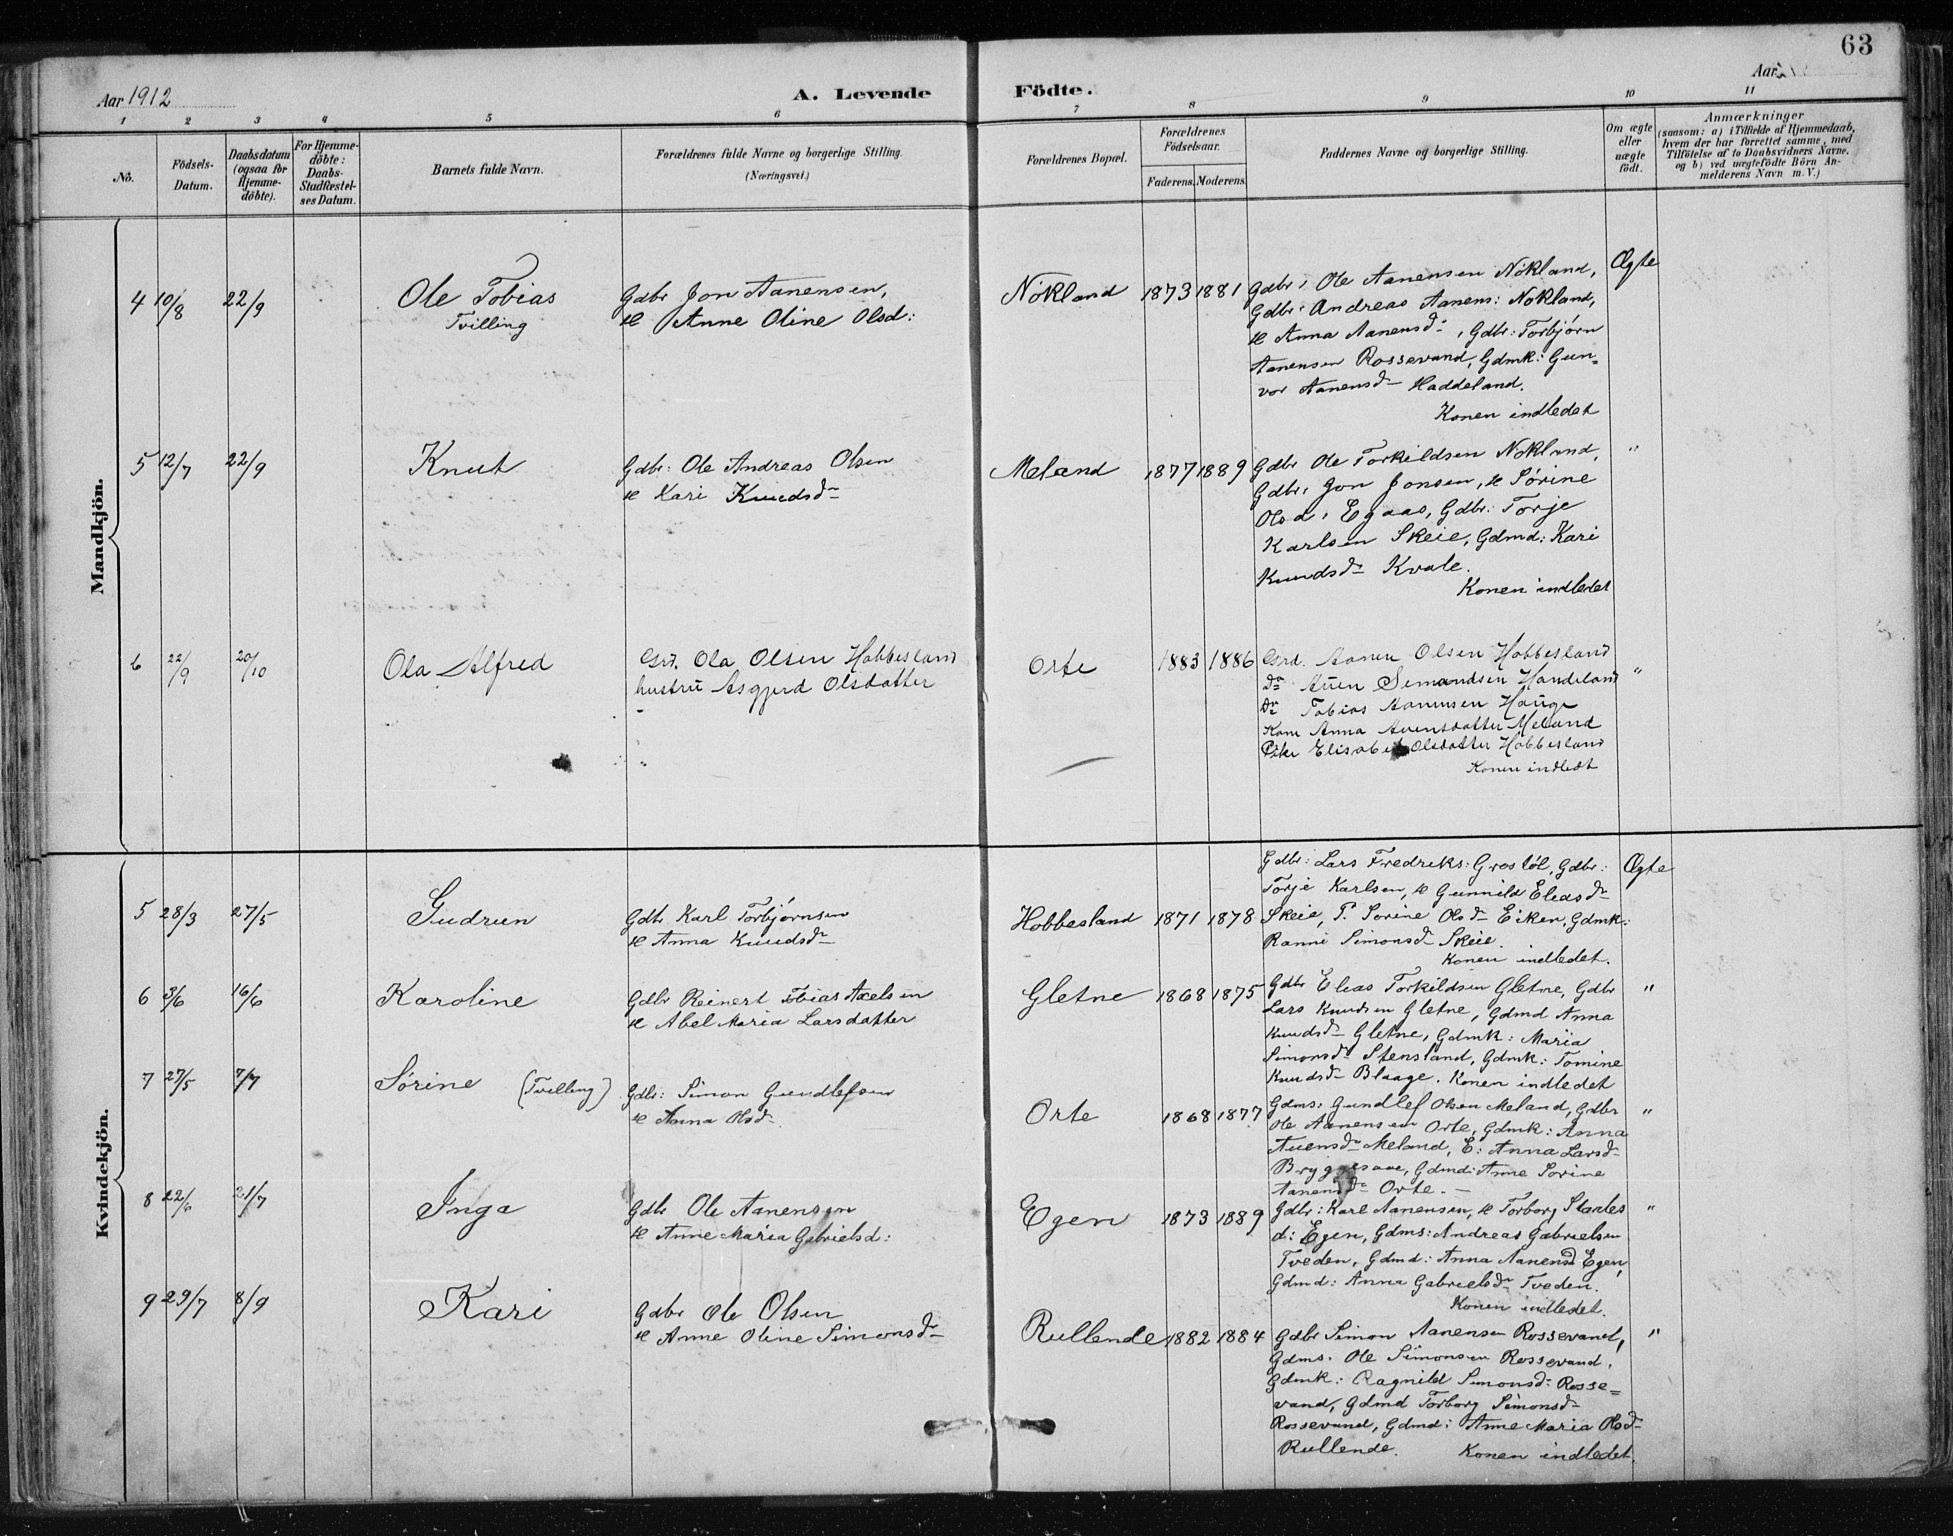 63
Aar 1912
A. Levende
Födte.
Aar
1 2 3 4 5 6 7 8 9 10 11
No.
Födsels-
Datum.
Daabsdatum
(ogsaa for
Hjemme-
döbte).
For Hjemme-
döbte:
Daabs-
Stadfæstel-
ses Datum.
Barnets fulde Navn.
Forældrenes fulde Navne og borgerlige Stilling.
(Næringsvei.)
Forældrenes Bopæl.
Forældrenes
Födselsaar.
Faderens. Moderens.
Faddernes Navne og borgerlige Stilling.
Om ægte
eller
uægte
født.
Anmærkninger
(saasom: a) i Tilfælde af Hjemmedaab,
hvem der har forrettet samme, med
Tilföielse af to Daabsvidners Navne.
og b) ved uægtefödte Börn An-
melderens Navn m. V.)
Mandkjön.
4 10/8 22/9
Ole Tobias
Tvilling
Gdbr Jon Aanensen,
H Anne Oline Olsd:
Nökland 1873 1881
Gdbr: Ole Aanensen Nökland,
Gdbr: Andreas Aanens: Nökland,
H Anna Aanensdr, Gdbr: Torbjørn
Aanensen Rossevand, Gdmk: Gun=
vor Aanensdr Haddeland.
Konen indledet
Ægte
5 12/7 22/9
Knut
Gdbr: Ole Andreas Olsen
H Kari Knudsdr
Meland 1877 1889
Gdbr Ole Torkildsen Nökland,
Gdbr: Jon Jonsen, H Sörine
Olsd: Egaas, Gdbr: Torje
Karlsen Skeie, Gdmd: Kari
Knudsdr Kvale.
Konen indledet
"
6 22/9 20/10
Ola Alfred
Grd. Ola Olsen Hobbesland
hustru Asgjerd Olsdatter
Orte 1883 1886
Grd. Aanen Olsen Hobbesland
do Auen Semundsen Handeland
do Tobias Aanensen Hauge
Kone Anna Auensdatter Meland
Pike Elisabet Olsdatter Hobbesland
Konen indledt
"
Kvindekjön.
5 28/3 27/5
Gudrun
Gdbr Karl Torbjørnsen
H Anna Knudsdr
Hobbesland 1871 1878
Gdbr: Lars Fredriks: Grostöl, Gdbr:
Torje Karlsen, H Gunnild Eliasdr
Skeie, P. Sorine Olsdr Eiken, Gdmk:
Ranni Simonsdr Skeie.
Konen indledet.
Ægte
6 3/6 16/6
Karoline
Gdbr Reinert Tobias Axelsen
H Abel Maria Larsdatter
Gletne 1868 1875
Gdbr Elias Torkildsen Gletne, Gdbr
Lars Knudsen Gletne, Gdmd Anna
Knudsdr Gletne, Gdmk: Maria
Simonsdr Stensland, Gdmk: Tomine
Knudsdr Blaage. Konen indledet
"
7 27/5 7/7
Sörine (Tvilling)
Gdbr: Simon Gundlefsen
H Anna Olsdr
Orte 1868 1877
Gdms: Gundlef Olsen Meland, Gdbr
Ole Aanensen Orte, Gdmk: Anna
Auensdr Meland, E: Anna Larsdr
Bryggesaae, Gdmd: Anne Sorine
Aanensdr Orte.
"
8 22/6 21/7
Inga
Gdbr Ole Aanensen
H Anne Maria Gabrielsd:
Egen 1873 1889
Gdbr: Karl Aanensen, H Torborg
d: Egen, Gdms: Andreas Gabrielsen
Tveden, Gdmd: Anna Aanensd Egen,
Gdmd: Anna Gabrielsdr Tveden.
Konen indledet.
"
9 29/7 8/9
Kari
Gdbr Ole Olsen
H Anne Oline Simonsdr
Rullende 1882 1884
Gdbr Simon Aanensen Rossevand,
Gdms: Ole Simonsen Rossevand,
Gdmk: Ragnild Simonsd: Rosse=
vand, Gdmd Torborg Simonsdr
Rossevand, Gdmd: Anne Maria Olsdr
Rullende. Konen indledet
"